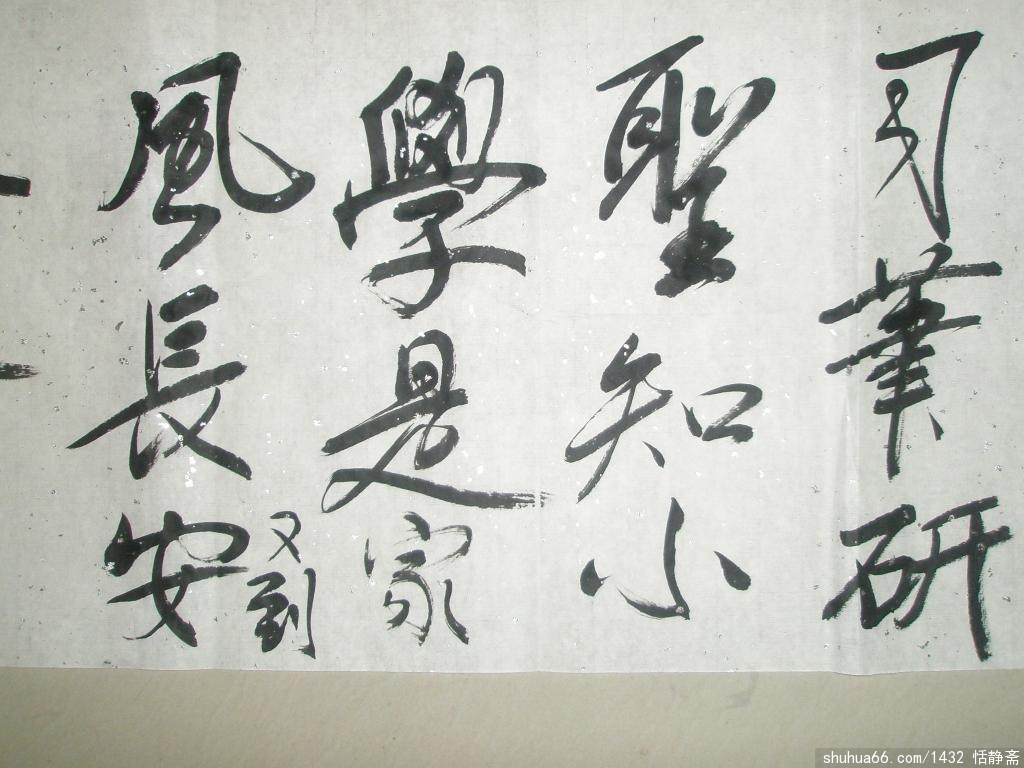 司筆研
聖知小
學是家
風長安
又到
shuhua66.com/1432 恬静斋